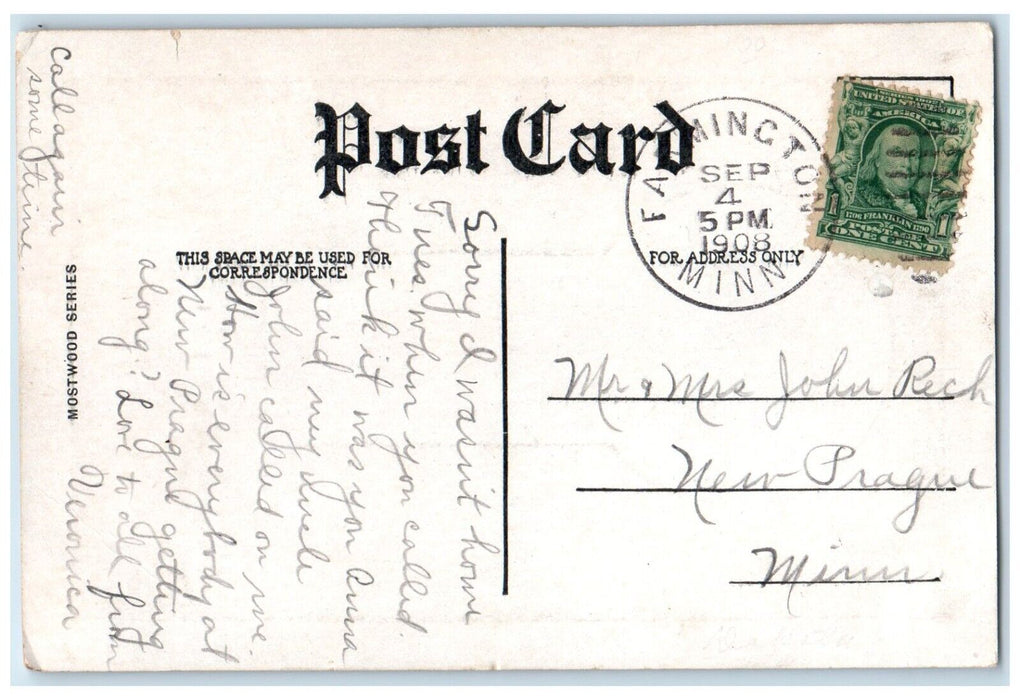 Post Card
FARMINGTON
SEP
4
5 PM
1908
MINN.
UNITED STATES OF
AMERICA
1706 FRANKLIN 1790
1 POSTAGE 1
ONE CENT
THIS SPACE MAY BE USED FOR
CORRESPONDENCE
FOR ADDRESS ONLY
MOSTWOOD SERIES
Sorry I wasn't home
Tues. when you called.
think it was you Anna
said my uncle
John called on me.
How is everybody at
New Prague getting
along? Love to all from
Veronica
Call again
sometime.
Mr & Mrs John Rech
New Prague
Minn